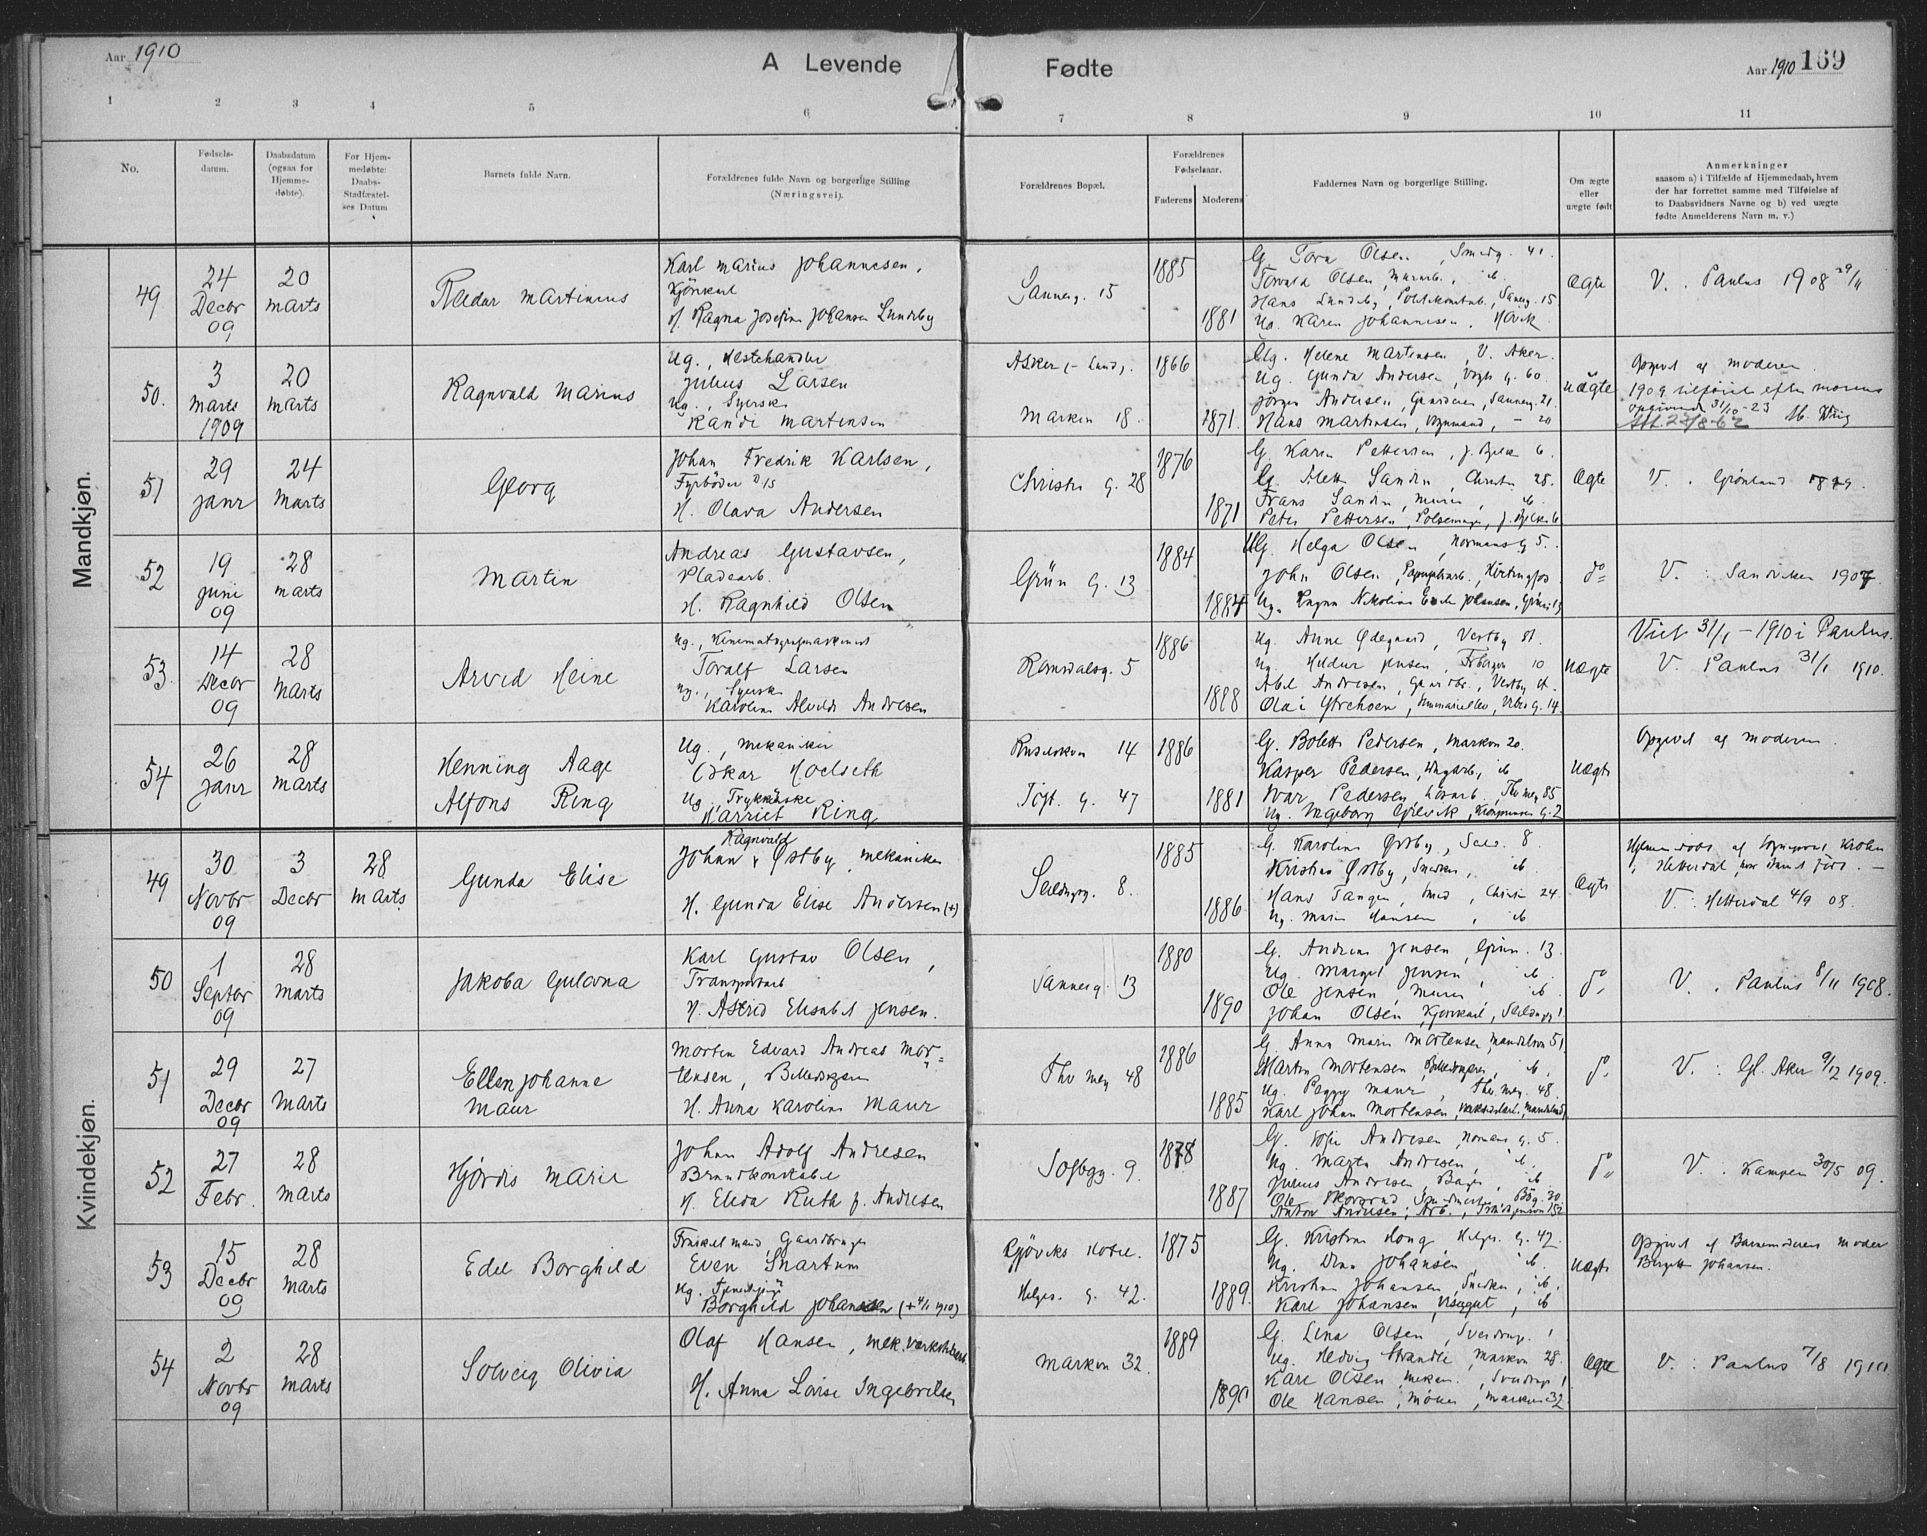 Aar 1910
A Levende Fødte
Aar 1910 169
1 2 3 4 5 6 7 8 9 10 11
No.
Fødsels-
datum.
Daabsdatum
(ogsaa for
Hjemme-
døbte).
For Hjem-
medøbte:
Daabs-
Stadfæstel-
ses Datum
Barnets fulde Navn.
Forældrenes fulde Navn og borgerlige Stilling
(Næringsvei).
Forældrenes Bopæl.
Forældrenes
Fødselsaar.
Faderens Moderens
Faddernes Navn og borgerlige Stilling.
Om ægte
eller
uægte født
Anmerkninger
saasom a) i Tilfælde af Hjemmedaab, hvem
der har forrettet samme med Tilføielse af
to Daabsvidners Navne og b) ved uægte
fødte Anmelderens Navn m. v.)
Mandkjøn.
49
24
Decbr
09
20
Marts
Reidar Martinius
Karl Marius Johannesen,
Kjørekarl
H. Ragna Josefine Johansen Lundeby
Sannerg. 15
1885
1881
G. Tora Olsen, Smedg. 41
Torvald Olsen, Murarb., ib
Hans Lundeby, Politikonstab., Sannerg. 15
Ug. Karen Johannesen, Høvik
Ægte
V. Paulus 1908 29/11
50.
3
Marts
1909
20
Marts
Ragnvald Marius
Ug., Hestehandler
Julius Larsen
Ug., Syerske
Randi Martensen
Asker
Markvn 18.
1866
1871
Ug. Helene Martensen, V. Aker.
Ug. Gunda Andersen, Vogts G. 60.
Jørgen Andersen, Sannerg. 21.
Hans Martinsen, Vognmand, - 20
uægte
Opgivet af Moderen.
1909 tilføiet efter morens
opgivende 31/10-23
Att. 28/8-62
51
29
Janr
24
Marts
Georg
Johan Fredrik Karlsen,
Fyrbøder
H. Olava Andersen
Christies G. 28
1876
1871
G. Karen Pettersen, J. Bjelkes 6.
G. Alette Sandin, Christies 28.
Frans Sandin, Murer, ib
Peter Pettersen, Pølsemager, J. Bjelkes 6
Ægte
V. Grønland
52
19
Juni
09
28
Marts
Martin
Andreas Gustavsen,
Pladearb.
H. Ragnhild Olsen
Grün G. 13
1884
1884
Ug. Helga Olsen, Normans G 5.
John Olsen,
do
V. : Sandviken 1907
53.
14
Decbr
09
28
Marts
Arvid Heine
Ug., Kinematografmaskinist
Toralf Larsen
Ug., Syerske
Karoline Alvilde Andresen
Romsdalsg. 5
1886
1888
Ug. Anne Ødegaard, Vestby st.
Ug. Hildur Jensen, 10
Abel Andresen, Vestby st.
Uægte
Viet 31/1 - 1910 i Paulus.
V. Paulus 31/1 1910.
54
26
Janr
28
Marts
Henning Aage
Alfons Ring
Ug., Mekaniker
Oskar Hoelseth
Ug., Trykkerske
Harriet Ring
14
Toft. G. 47
1886
1881
G. Bolette Pedersen, Markvn 20.
Kasper Pedersen, ib
Ivar Pedersen 85
Ug. Ingeborg
Uægte
Opgivet af Moderen.
Kvindekjøn.
49
30
Novbr
09
3
Decbr
28
Marts
Gunda Elise
Ragnvald
Johan Østby, Mekaniker
H. Gunda Elise Andersen (+)
Seildugsg. 8.
1885
1886
G. Karoline Østby, 8
Kristian Østby, Snedker, ib
Hans Tangen, Smed, Christies 24
Ug. Marie Hansen, ib
Ægte
Hjemmedøbt af Sogneprest
i Hitterdal, hvor Barnet født. -
V. Hitterdal 4/9 08.
50
1
Septbr
09
28
Marts
Jakoba Gulovna
Karl Gustav Olsen,
Transportarb
H. Astrid Elisabet Jensen.
Sannerg. 13
1880
1890
G. Andrine Jensen, Grün. 13.
Ug. Margit Jensen, ib.
Ole Jensen, Murer, ib.
Johan Olsen, Kjørekarl, Seildugsg 1
do
V. Paulus 8/11 1908.
51
29
Decbr
09
27
Marts
Ellen Johanne
Maur
Morten Edvard Andreas Mor=
tensen, Billedskjærer
H. Anna Karoline Maur
Thv Mey 48
1886
1885
G. Anna Marie Mortensen, 51
Martin Mortensen, Billedskjærer, ib.
Ug. Peggy Maur, Thv. Mey. 48.
Karl Johan Mortensen,
do
V. : Gl. Aker 9/12 1909.
52
27
Febr.
28
Marts
Hjørdis Marie
Johan Adolf Andresen
Brandkonstabel
H. Elida Ruth f. Andresen
Sofbgg. 9.
1878
1887
G. Sofie Andresen, Normans G. 5.
Ug. Marta Andresen, ib.
Julius Andresen, Bager, ib
Anton Andresen, Arb.,
do
V. : Kampen 30/5 09.
53
15
Decbr
09
28
Marts
Edel Borghild
Fraskilt Mand, Gaardbruger
Even Snartum
Ug. Tjenestepige
Borghild Johansen (+ 4/1 1910)
Gjøviks Hotel.
Helges. G. 42.
1875
1889.
G. Kristine Haug, Helges. G. 42
Ug. Dina Johansen, ib.
Kristian Johansen, Snedker, ib.
Karl Johansen, Visergut, ib
Uægte
Opgivet af Barnemoderens Moder
Birgitte Johansen.
54
2
Novbr
09
28
Marts
Solveig Olivia
Olaf Hansen, Mek. Værkstedarb.
H. Anna Lovise Ingebretsen
Markvn 32.
1889
1890
G. Lina Olsen, Sverdrups. 1
Ug. Hedvig Strandli, Markvn 28.
Karl Olsen, Mekan., Sverdrups 1
Ole Hansen, Møller, Markvn 32
Ægte
V. : Paulus 7/8 1910